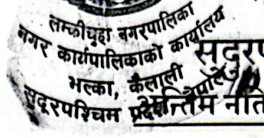 लम्कीचुहा नगरपालिका
नगर कार्यपालिकाको कार्यालय
भल्का, कैलाली
सुदूरपश्चिम प्रदेश
सुदूरप
नेपाल
न्तिम नीति